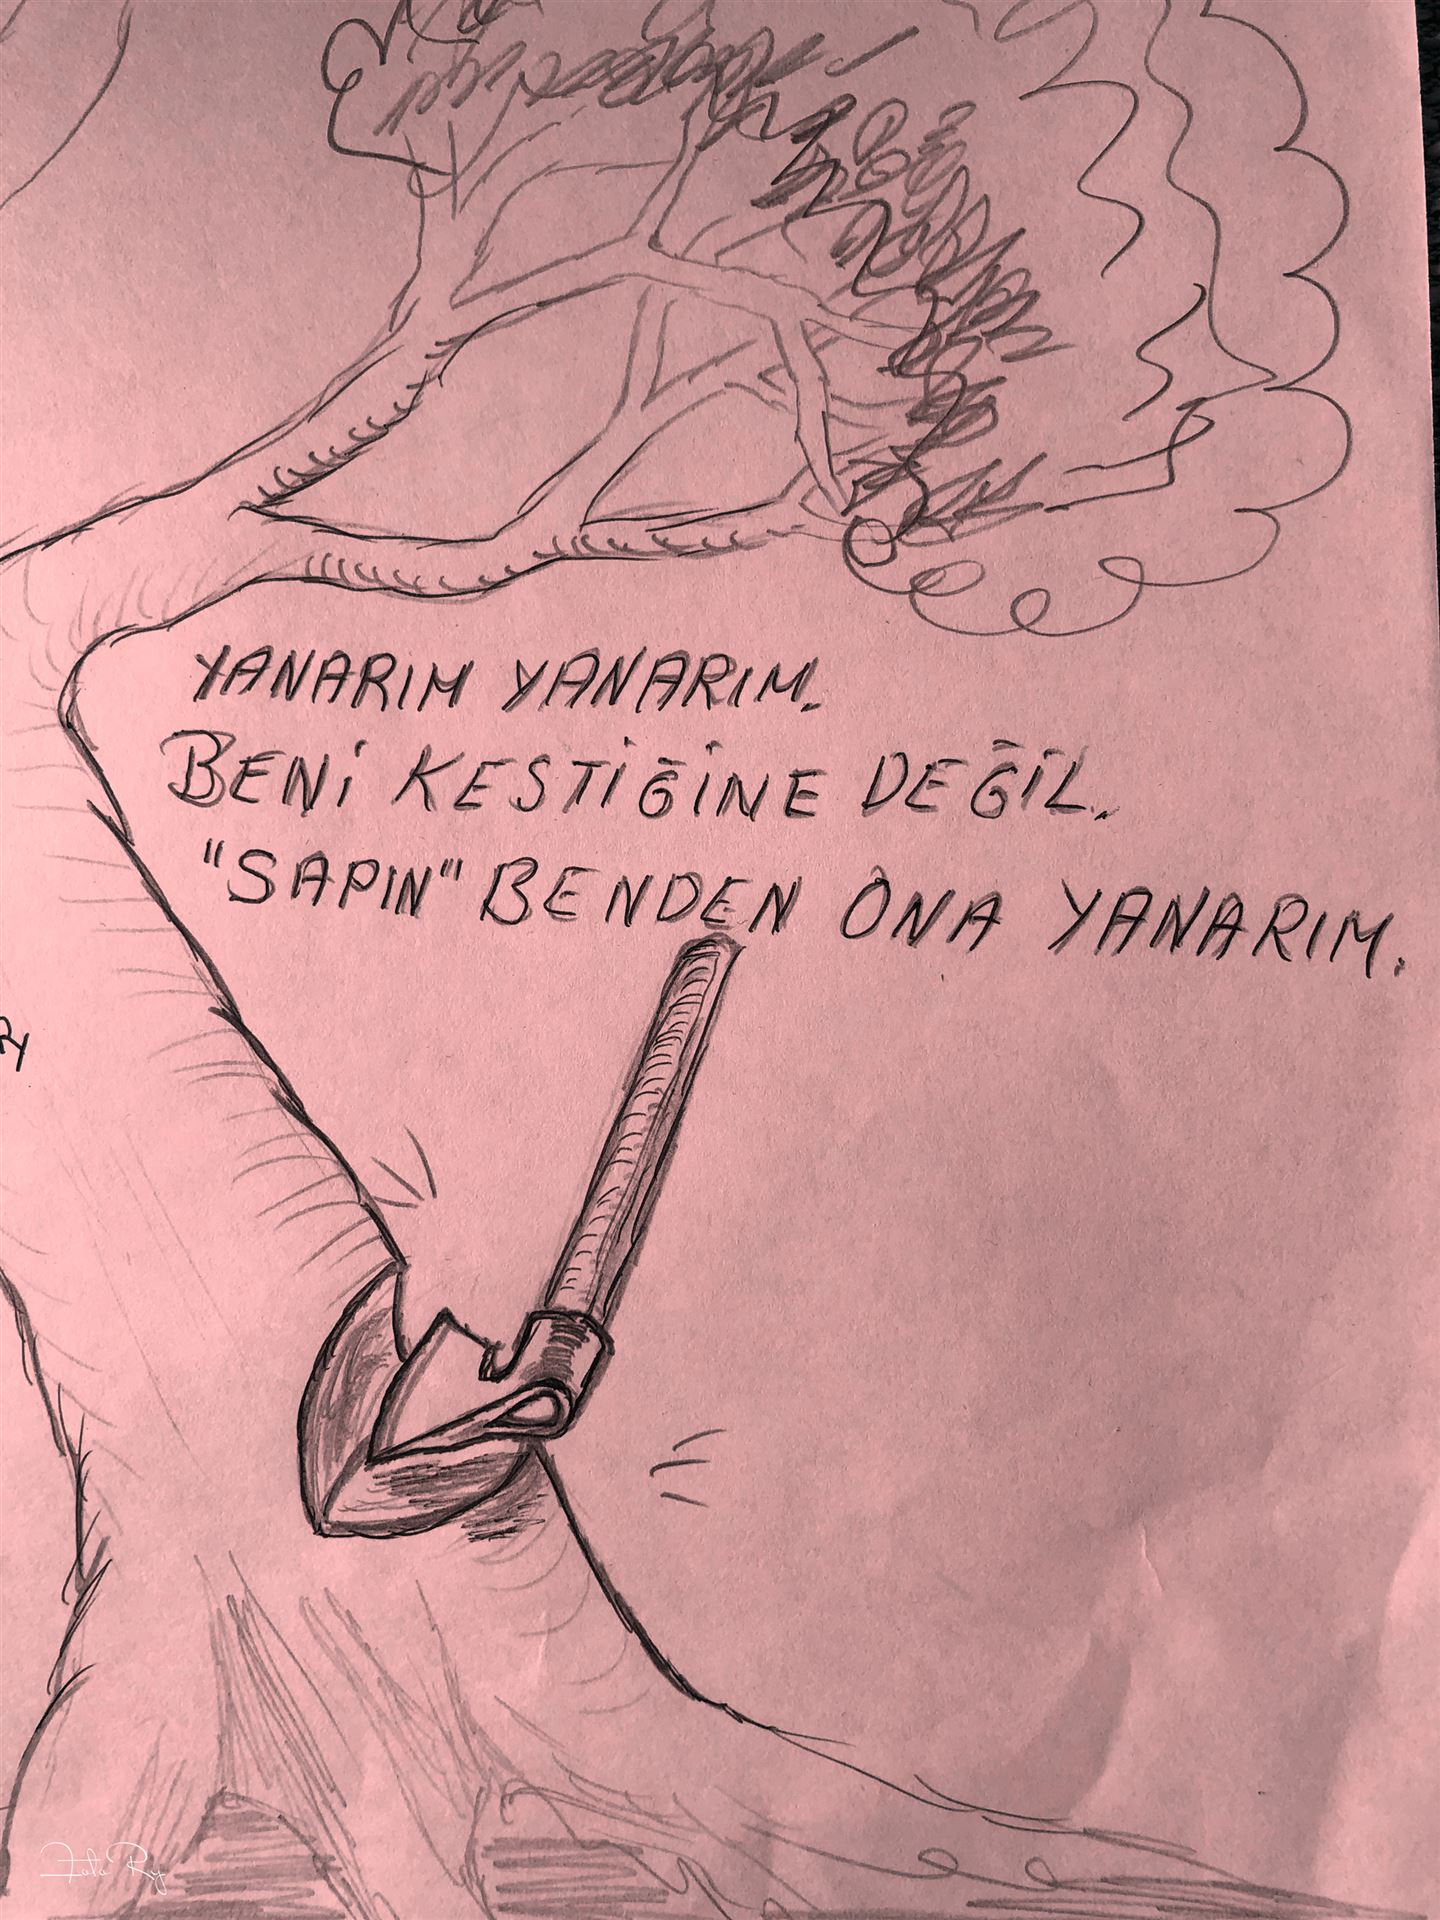 YANARIM YANARIM.
BENİ KESTİĞİNE DEĞİL.
"SAPIN" BENDEN ONA YANARIM.